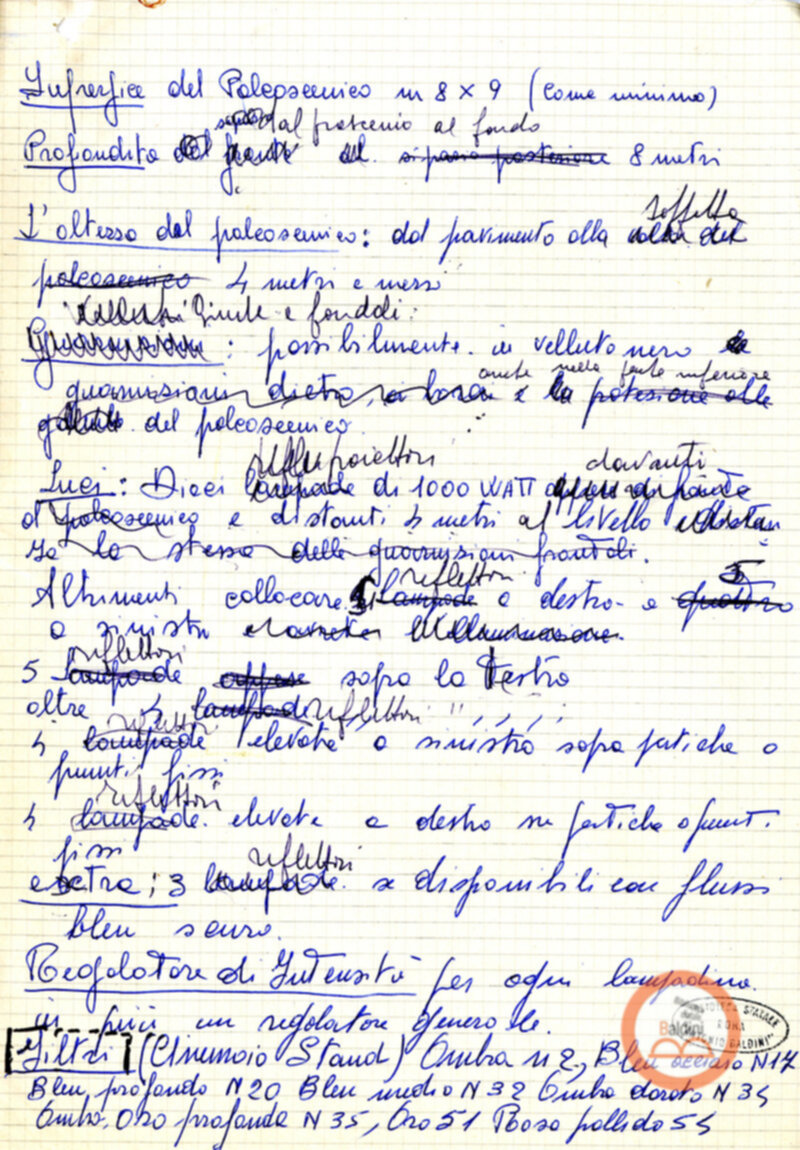 Superfice del Palcoscenico m 8 × 9 (come minimo)
dal proscenio al fondo
Profondita del fronte del sipario posteriore 8 metri
soffitta
L'altezza del palcoscenico: dal pavimento alla del
palcoscenico 4 metri e mezzo
Quinte e fondali:
: possibilmente in velluto nero
anche nella parte inferiore
guarnizioni dietro, e la
del palcoscenico
riflettori davanti
Luci: Dieci lampade di 1000 WATT
al palcoscenico e distanti 4 metri al livello
za la stessa delle guarnizioni frontali.
riflettori 5
Altrimenti collocare lampade a destra e quattro
a sinistra
riflettori
5 lampade appese sopra la testa
oltre 4 lampade riflettori " , , , ,
riflettori
4 lampade elevate a sinistra sopra pertiche o
punti fissi
riflettori
4 lampade elevate a destra su pertiche o punti
fissi
riflettori
extra; 3 lampade se disponibili con flussi
bleu scuro.
Regolatore di Intensità per ogni lampadina.
in più un regolatore generale.
Filtri (Cinemoio Stand) Ombra n 2, Bleu acciaio N 17
Bleu profondo N 20 Bleu medio N 32 Ombra dorato N 34
Ombra. Oro profondo N 35, Oro 51 Rosa pallido 54
Baldini
BIBLIOTECA STATALE
ROMA
ANTONIO BALDINI